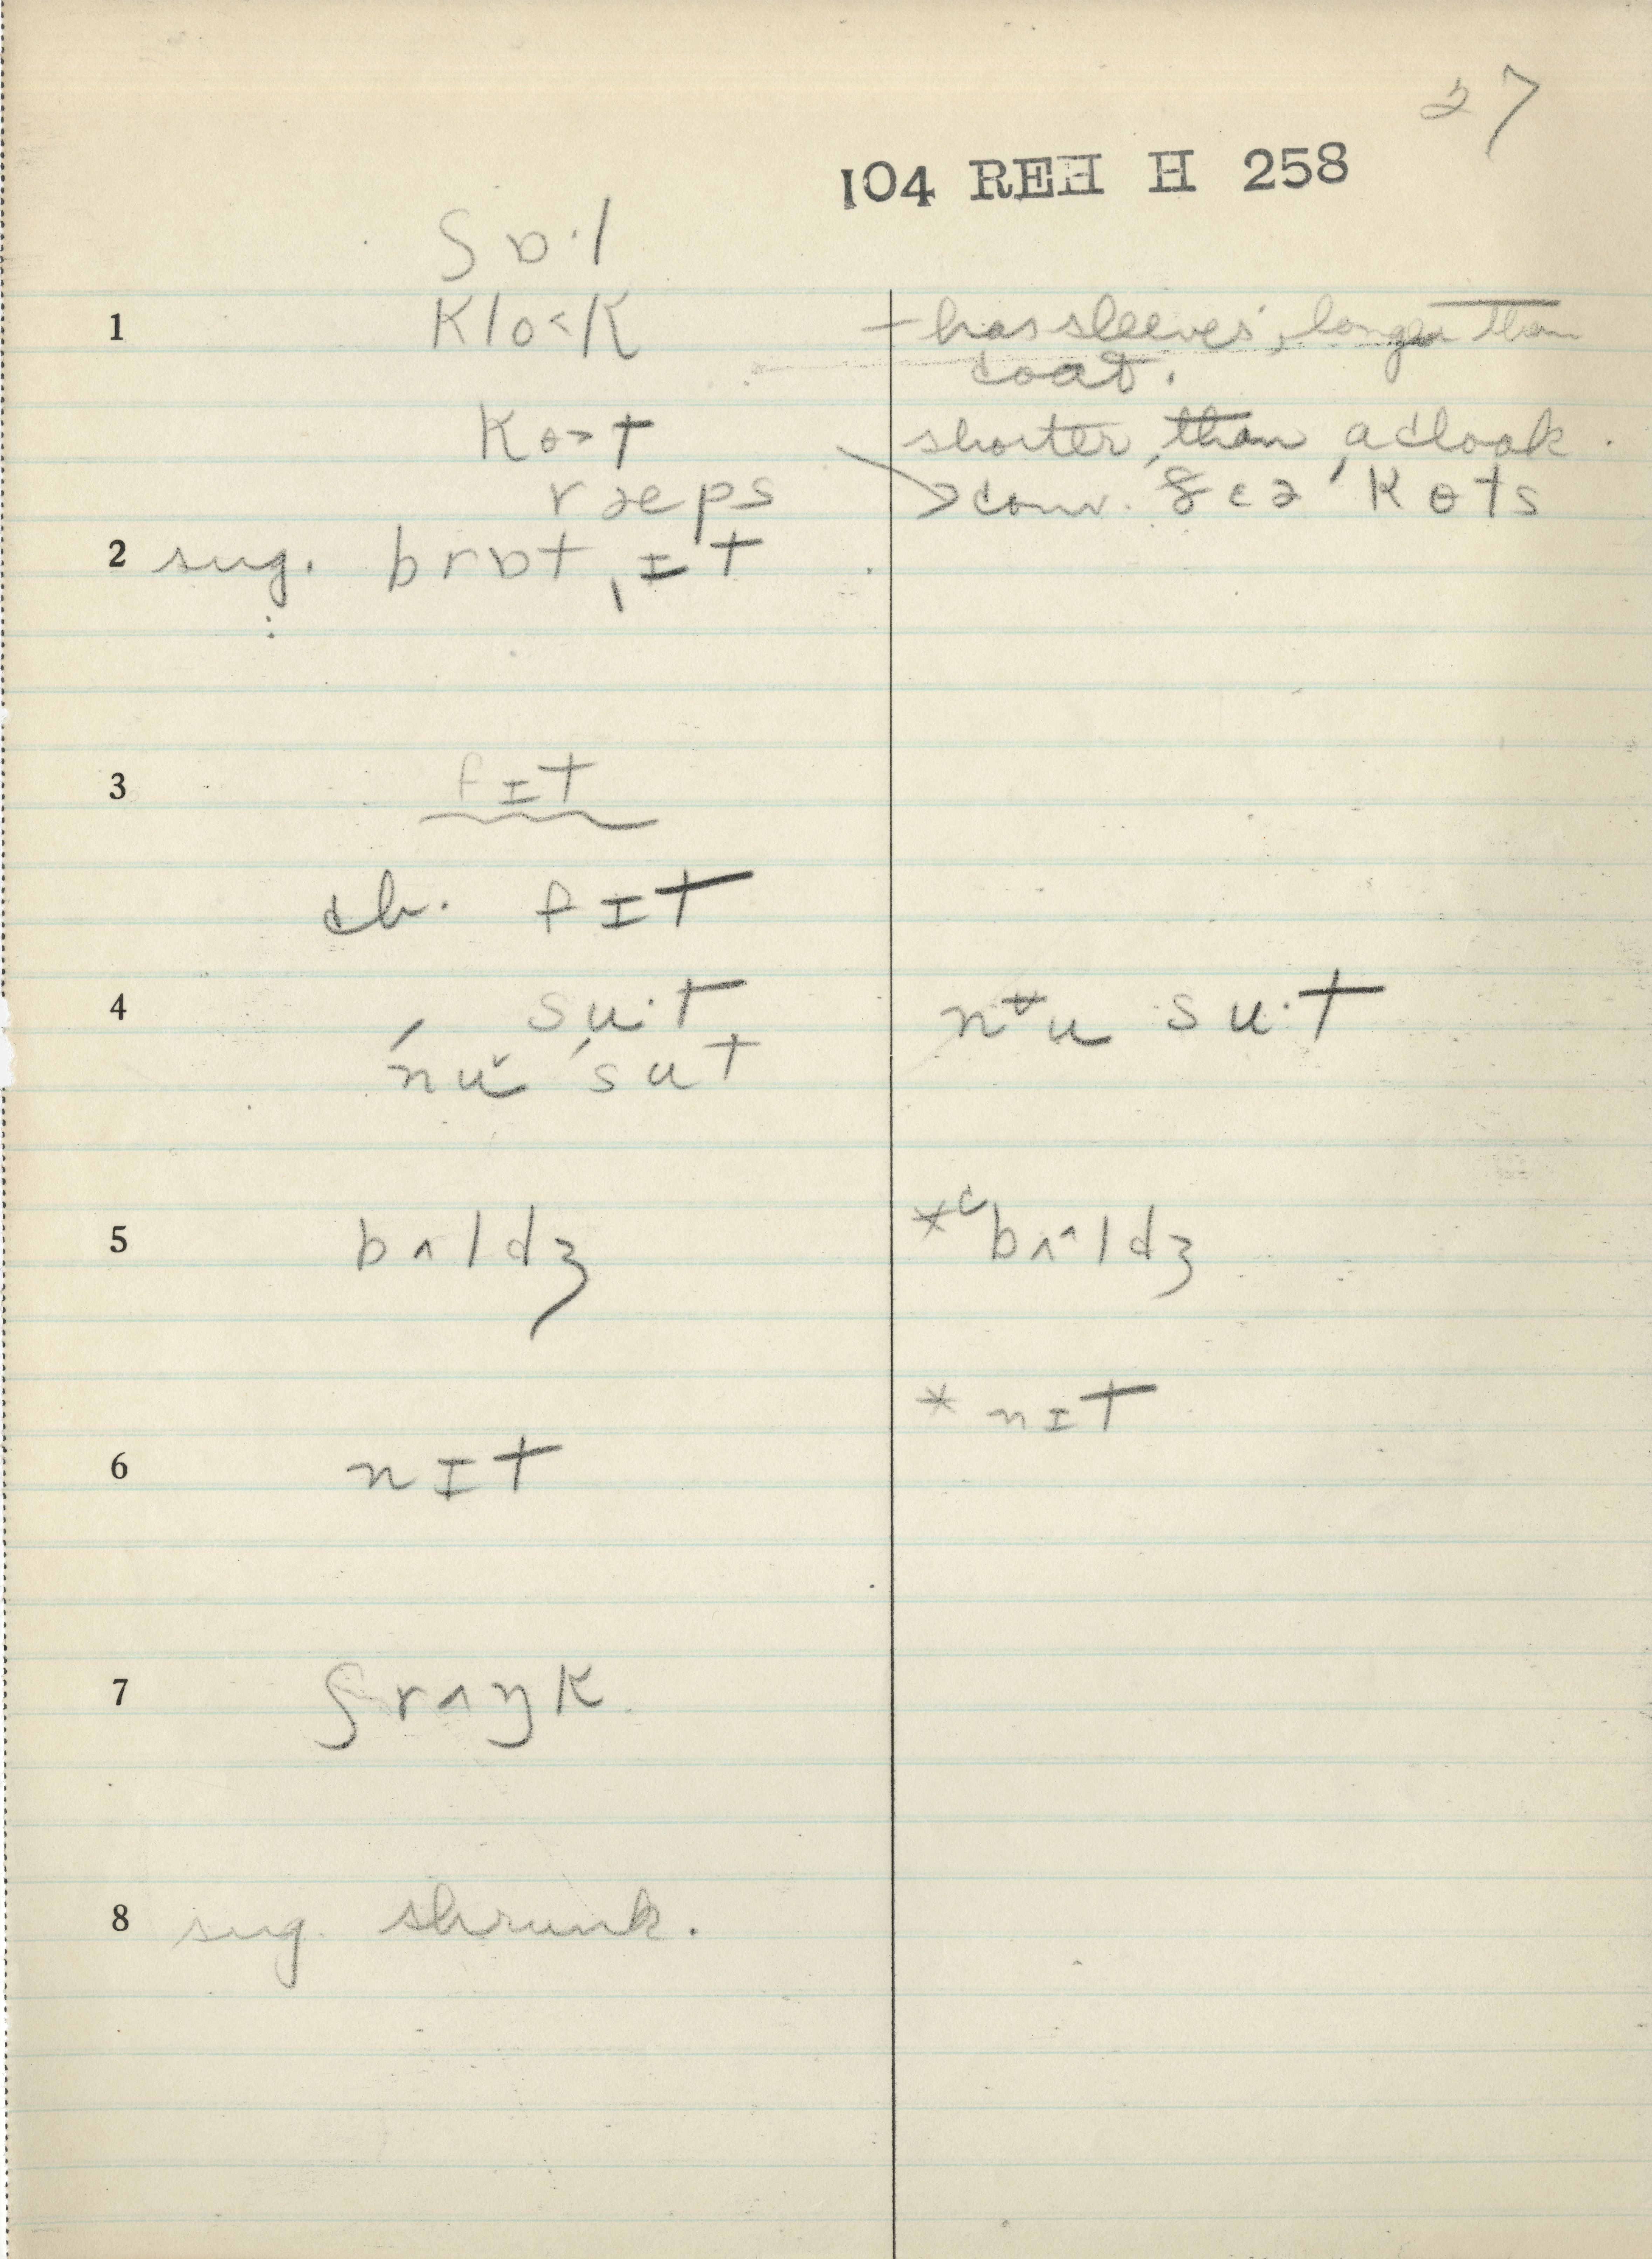 27
104 REH H 258
ʃɒ·l
1 klo˂k – has sleeves, longer than
coat.
ko˃t shorter than a cloak.
ræps > conv. ðɛə ˈkɵts
2 sug. brɒt ˌɪt
3 fɪt
ch. fɪt
4 su·t nᵾu su·t
ˈnŭ ˈsut
5 bʌldʒ *c bʌ^ldʒ
* nɪt
6 nɪt
7 ʃrʌŋk
8 sug. shrunk.